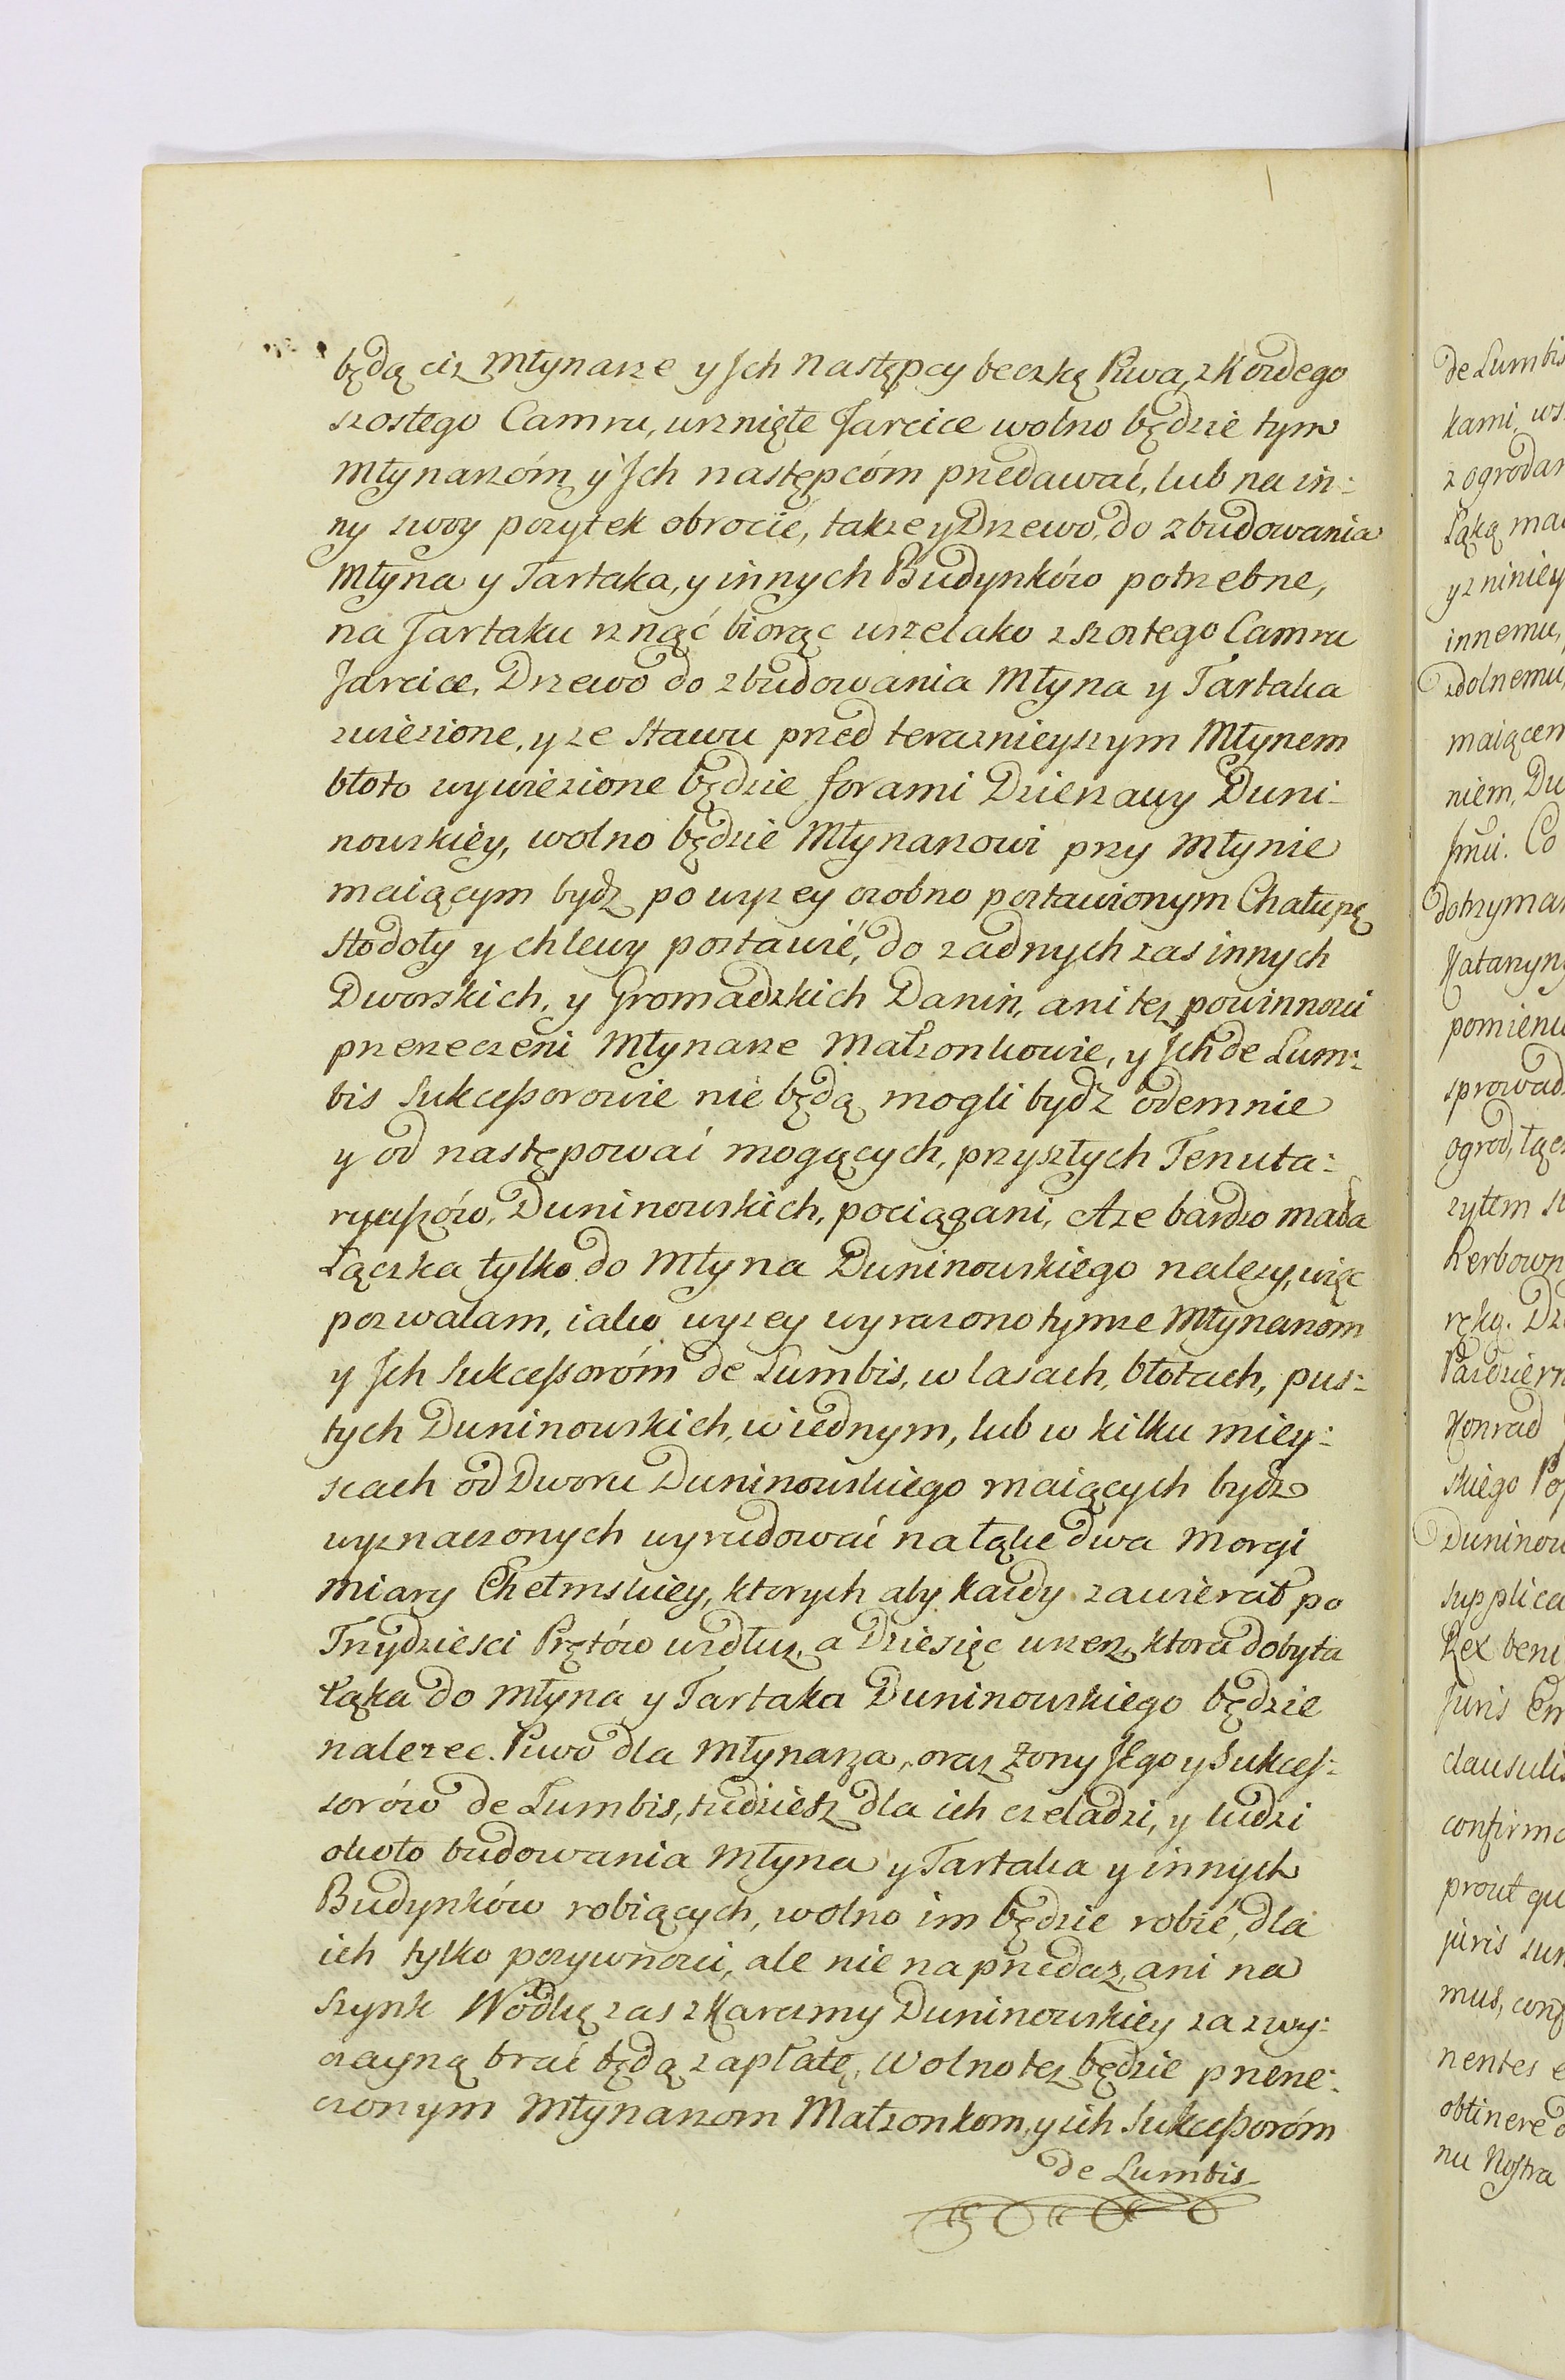 będą ciż Młynarze y Ich Następcy beczką Piwa, z Każdego
szostego Camru, urznięte Tarcice wolno będzie tym
Młynarzóm y Ich następcóm przedawać, lub na in:
ny swoy pożytek obrocić, także y Drzewo, do zbudowania
Młyna y Tartaka, y innych Budynków potrzebne,
na Tartaku rznąć biorąc wszelako z szostego Camru
Tarcice, Drzewo do zbudowania Młyna y Tartaka
zwiezione, y ze Stawu przed teraznieyszym Młynem
błoto wywiezione będzie forami Dzierzawy Duni-
nowskiey, wolno będzie Młynarzowi przy Młynie
maiącym bydz powyzey osobno postawionym Chałupę
Stodoły y chlewy postawić, do żadnych zas innych
Dworskich, y Gromadzkich Danin, ani tez powinnosci
przerzeczeni Młynarze Małzonkowie, y Ich de Lum:
bis Sukceßorowie nie będą mogli bydź odemnie
y od następować mogących, przyszłych Tenuta:
ryußów, Duninowskich, pociągani, A ze bardzo mała
Łączka tylko do Młyna Duninowskiego nalezy, więc
pozwalam, iako wyzey wyrazono tymze Młynarzom
y Ich Sukceßoróm de Lumbis, w lasach, błotach, pus:
tych Duninowskich, w iednym, lub w kilku miey:
scach od Dworu Duninowskiego maiących bydz
wyznaczonych wyrudować na łąkę dwa Morgi
miary Chełmskiey, ktorych aby kazdy zawierał po
Trzydziesci Prętów wzdłuz, a Dziesięc wszerz, ktora dobyta
łąka do Młyna y Tartaka Duninowskiego będzie
nalezec. Piwo dla Młynarza, oraz Żony Jego y Sukceſ:
sorów de Lumbis, tudziesz dla ich czeladzi, y ludzi
około budowania Młyna y Tartaka y innych
Budynków robiących, wolno im będzie robić, dla
ich tylko pozywnosci, ale nie na przedaz, ani na
szynk Wódkę zas z Karczmy Duninowskiey za zwy:
czayną brać będą zapłatę. Wolno tez będzie przerze:
czonym Młynarzom Małzonkom, y ich Sukceßoróm
de Lumbis
de Lumbis
kami, ws
z ogrodam
Łąką ma
y z niniey
innemu,
zdolnemu,
maiącem
niem, Du
Co
dotrzyma
Katarzyn
pomieni
sprowad
ogrod, łącz
zytem
Kerbown
ręką. Dz
Pazdziern
Konrad
skiego Po
Duninow
supplica
Rex beni
Juris Em
clausulis
confirma
prout qu
juris sum
mus, conf
nentes e
obtinere d
nu Noſtra